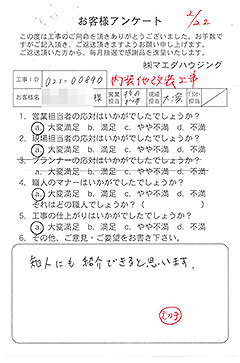 お客様アンケート
2/22
この度は工事のご用命を頂きありがとうございました。お手数で
すがご記入頂き、ご返送頂きますようお願い申し上げます。
ご返送頂いた方から、毎月抽選で感謝品を進呈いたします。
㈱マエダハウジング
工事ID 021-00890 内装他改装工事
お客様名 様 営業担当 現場担当
1. 営業担当者の応対はいかがでしたでしょうか?
a. 大変満足 b. 満足 c. やや不満 d. 不満
2. 現場担当者の応対はいかがでしたでしょうか?
a. 大変満足 b. 満足 c. やや不満 d. 不満
3. プランナーの応対はいかがでしたでしょうか?
a. 大変満足 b. 満足 c. やや不満 d. 不満
4. 職人のマナーはいかがでしたでしょうか?
a. 大変満足 b. 満足 c. やや不満 d. 不満
それはどの職人でしょうか?( )
5. 工事の仕上がりはいかがでしたでしょうか?
a. 大変満足 b. 満足 c. やや不満 d. 不満
6. その他、ご意見・ご要望をお書き下さい。
知人にも紹介できると思います。